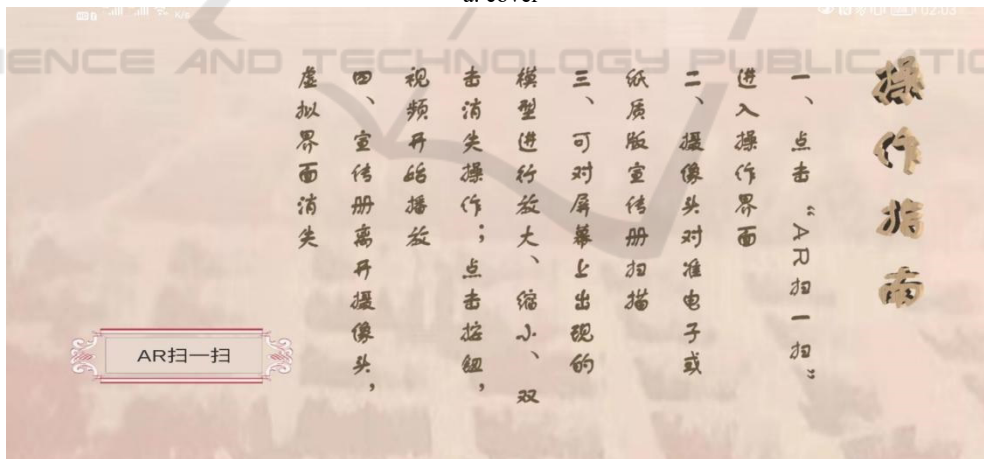 a. cover
02:03
IENCE AND TECHNOLOGY PUBLICATIO
操作指南
一、点击“AR扫一扫”
进入操作界面
二、摄像头对准电子或
纸质版宣传册扫描
三、可对屏幕上出现的
模型进行放大、缩小、双
击消失操作；点击按钮，
视频开始播放
四、宣传册离开摄像头，
虚拟界面消失
AR扫一扫